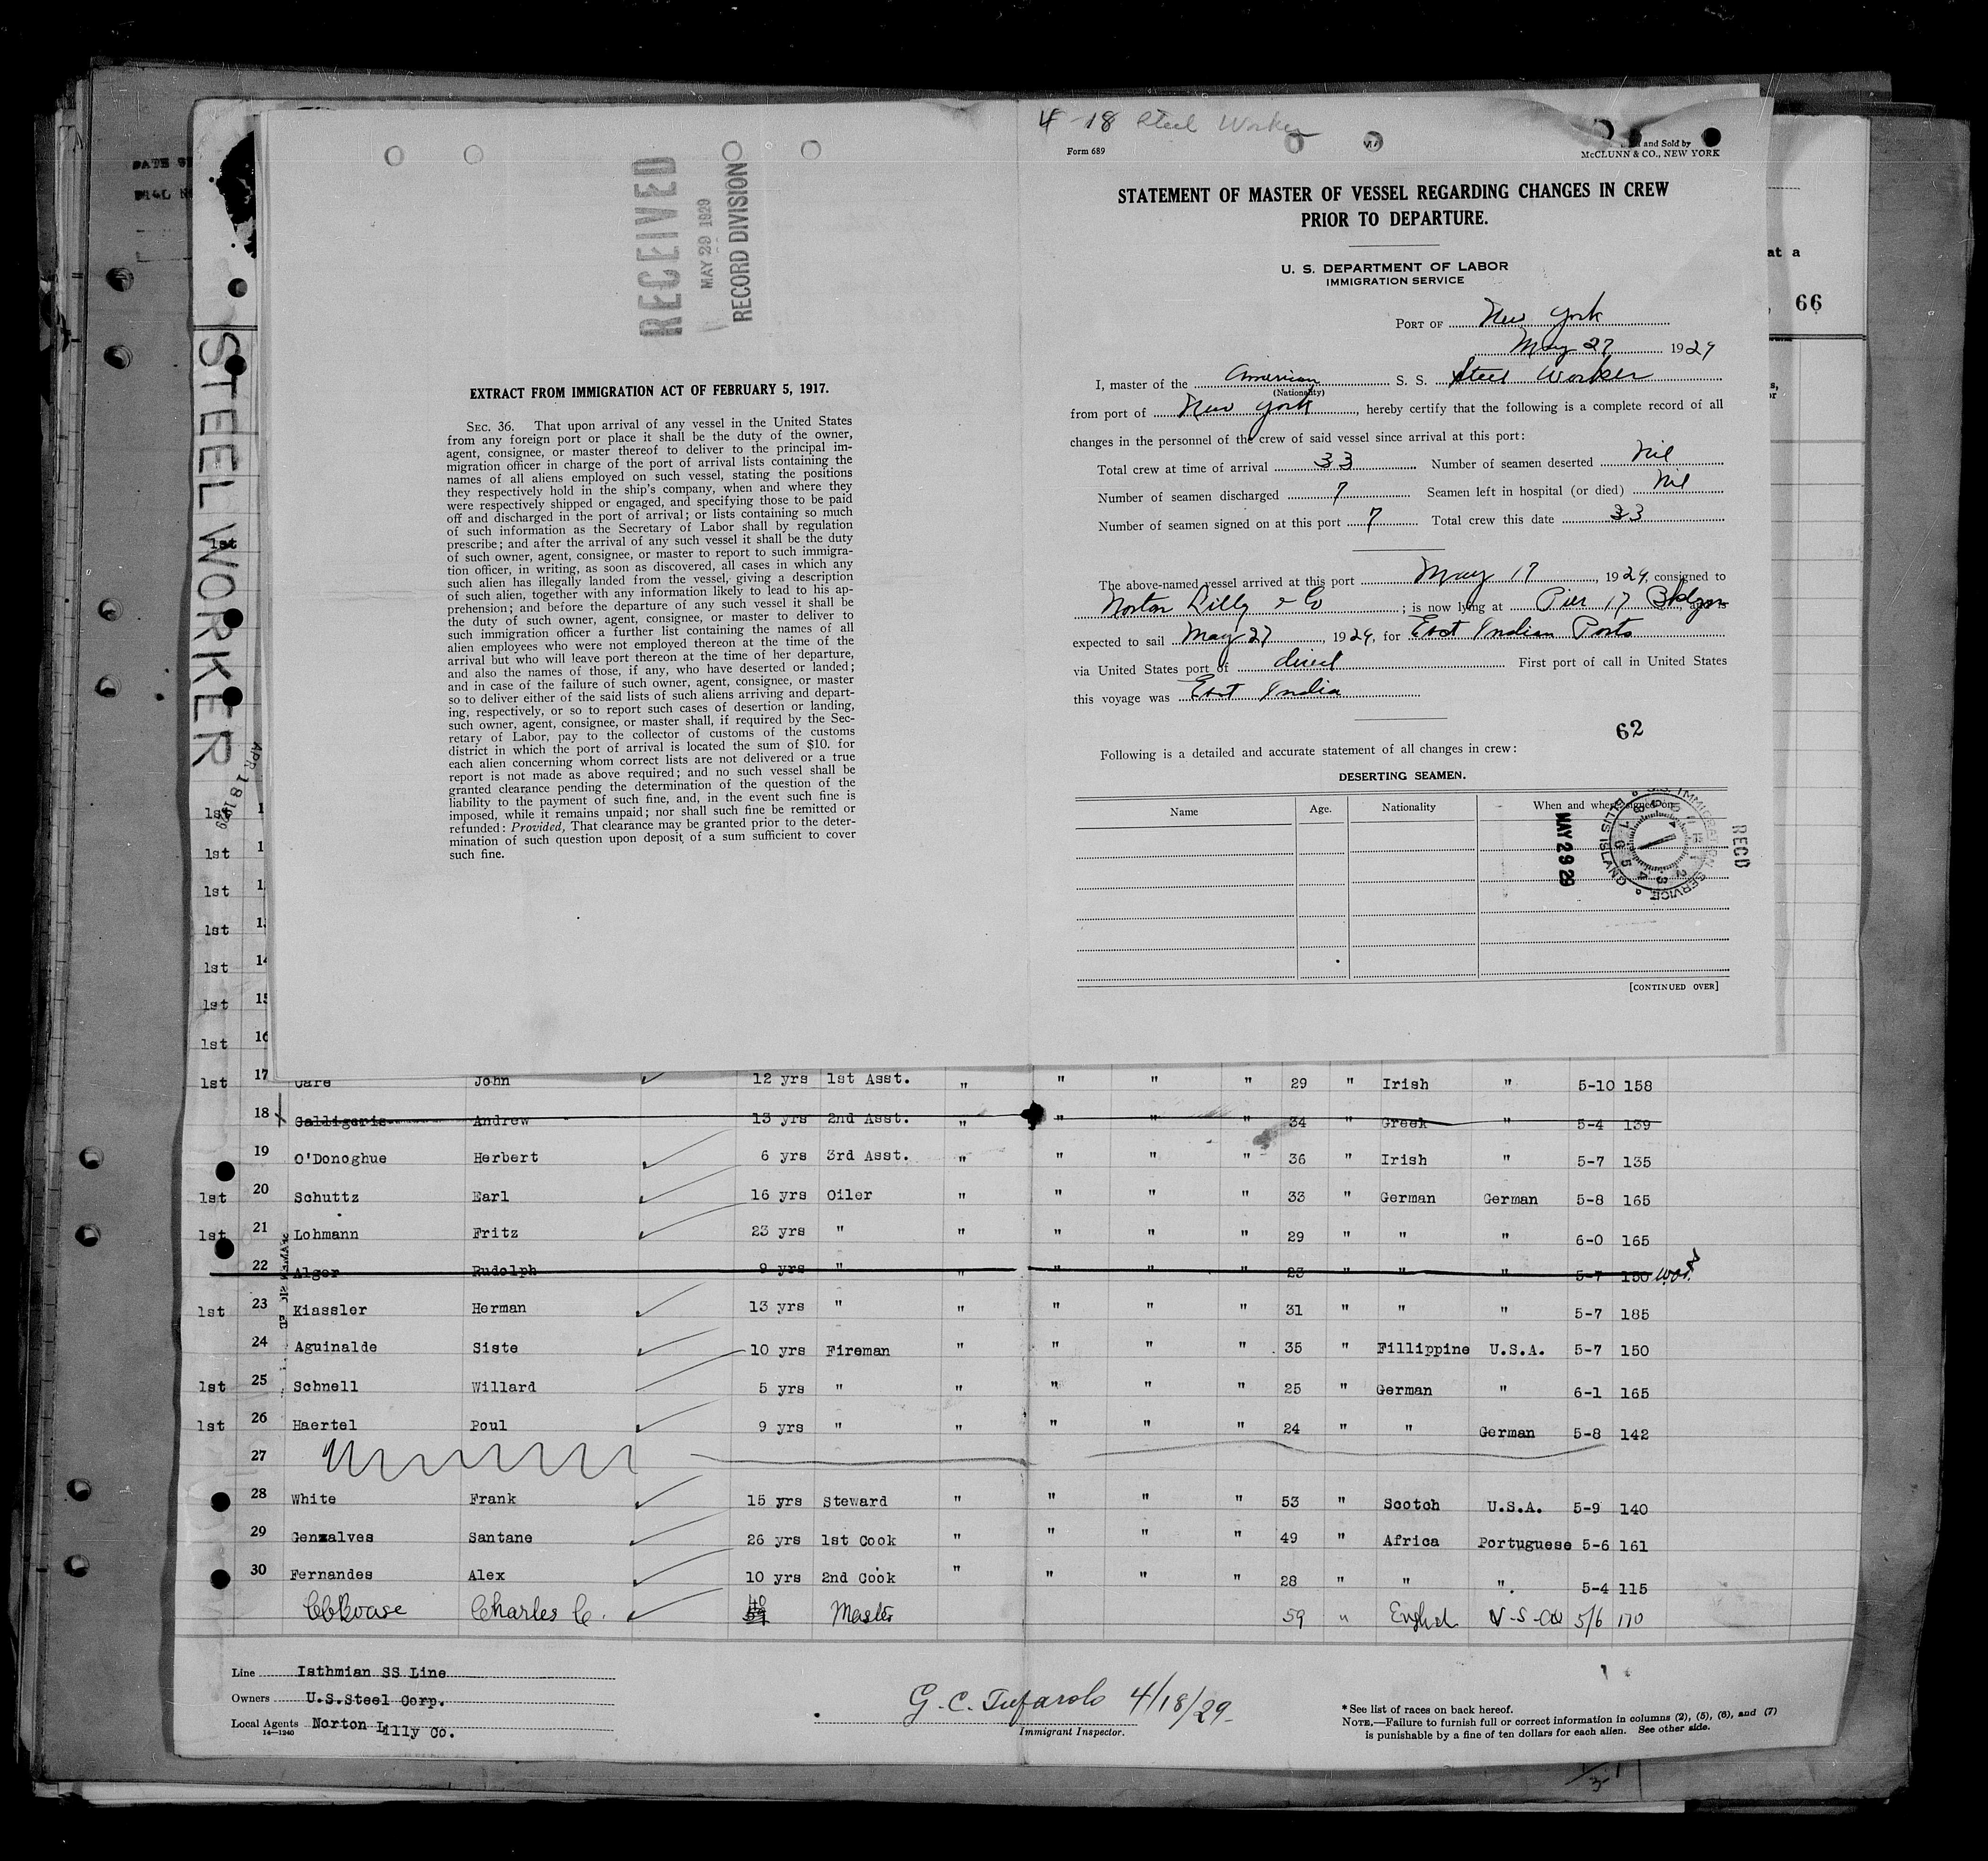 4-18 Steel Worker
Form 689
and Sold by
McCLUNN & CO., NEW YORK
RECEIVED
MAY 29 1929
RECORD DIVISION
STATEMENT OF MASTER OF VESSEL REGARDING CHANGES IN CREW
PRIOR TO DEPARTURE.
U. S. DEPARTMENT OF LABOR
IMMIGRATION SERVICE
PORT OF New York
May 27 1929
I, master of the American S. S. Steel Worker
(Nationality)
from port of New York, hereby certify that the following is a complete record of all
changes in the personnel of the crew of said vessel since arrival at this port:
Total crew at time of arrival 33 Number of seamen deserted Nil
Number of seamen discharged 7 Seamen left in hospital (or died) Nil
Number of seamen signed on at this port 7 Total crew this date 33
The above-named vessel arrived at this port May 17, 1929, consigned to
Norton Lilly & Co; is now lying at Pier 17 Bklyn
expected to sail May 27, 1929, for East Indian Ports
via United States port of direct First port of call in United States
this voyage was East India
62
Following is a detailed and accurate statement of all changes in crew:
DESERTING SEAMEN.
Name Age. Nationality When and where signed on
MAY 29 29
U.S. IMMIGRATION SERVICE ELLIS ISLAND
RECD
[CONTINUED OVER]
EXTRACT FROM IMMIGRATION ACT OF FEBRUARY 5, 1917.
SEC. 36. That upon arrival of any vessel in the United States
from any foreign port or place it shall be the duty of the owner,
agent, consignee, or master thereof to deliver to the principal im-
migration officer in charge of the port of arrival lists containing the
names of all aliens employed on such vessel, stating the positions
they respectively hold in the ship's company, when and where they
were respectively shipped or engaged, and specifying those to be paid
off and discharged in the port of arrival; or lists containing so much
of such information as the Secretary of Labor shall by regulation
prescribe; and after the arrival of any such vessel it shall be the duty
of such owner, agent, consignee, or master to report to such immigra-
tion officer, in writing, as soon as discovered, all cases in which any
such alien has illegally landed from the vessel, giving a description
of such alien, together with any information likely to lead to his ap-
prehension; and before the departure of any such vessel it shall be
the duty of such owner, agent, consignee, or master to deliver to
such immigration officer a further list containing the names of all
alien employees who were not employed thereon at the time of the
arrival but who will leave port thereon at the time of her departure,
and also the names of those, if any, who have deserted or landed;
and in case of the failure of such owner, agent, consignee, or master
so to deliver either of the said lists of such aliens arriving and depart-
ing, respectively, or so to report such cases of desertion or landing,
such owner, agent, consignee, or master shall, if required by the Sec-
retary of Labor, pay to the collector of customs of the customs
district in which the port of arrival is located the sum of $10. for
each alien concerning whom correct lists are not delivered or a true
report is not made as above required; and no such vessel shall be
granted clearance pending the determination of the question of the
liability to the payment of such fine, and, in the event such fine is
imposed, while it remains unpaid; nor shall such fine be remitted or
refunded: Provided, That clearance may be granted prior to the deter-
mination of such question upon deposit of a sum sufficient to cover
such fine.
STEEL WORKER
APR 18 1929
at a
66
1st
1st 1
1st 1
1st 1
1st 1
1st 14
1st 15
1st 16
1st 17 Care John 12 yrs 1st Asst. " " " " 29 " Irish " 5-10 158
18 Galligeris Andrew 13 yrs 2nd Asst. " " " 34 " Greek " 5-4 139
19 O'Donoghue Herbert 6 yrs 3rd Asst. " " " " 36 " Irish " 5-7 135
1st 20 Schuttz Earl 16 yrs Oiler " " " " 33 " German German 5-8 165
1st 21 Lohmann Fritz 23 yrs " " " " " 29 " " " 6-0 165
22 Alger Rudolph 9 yrs " " " " " 23 " " " 5-7 150
1st 23 Kiassler Herman 13 yrs " " " " " 31 " " " 5-7 185
24 Aguinalde Siste 10 yrs Fireman " " " " 35 " Fillippine U.S.A. 5-7 150
1st 25 Schnell Willard 5 yrs " " " " " 25 " German " 6-1 165
1st 26 Haertel Poul 9 yrs " " " " " 24 " " German 5-8 142
27
28 White Frank 15 yrs Steward " " " " 53 " Scotch U.S.A. 5-9 140
29 Genzalves Santane 26 yrs 1st Cook " " " " 49 " Africa Portuguese 5-6 161
30 Fernandes Alex 10 yrs 2nd Cook " " " " 28 " " " 5-4 115
Charles C. Master 59 " English U-S-A 5/6 170
Line Isthmian SS Line
Owners U.S.Steel Corp.
Local Agents Norton Lilly Co.
14—1240
G. C. Tufarolo 4/18/29
Immigrant Inspector.
* See list of races on back hereof.
NOTE.—Failure to furnish full or correct information in columns (2), (5), (6), and (7)
is punishable by a fine of ten dollars for each alien. See other side.